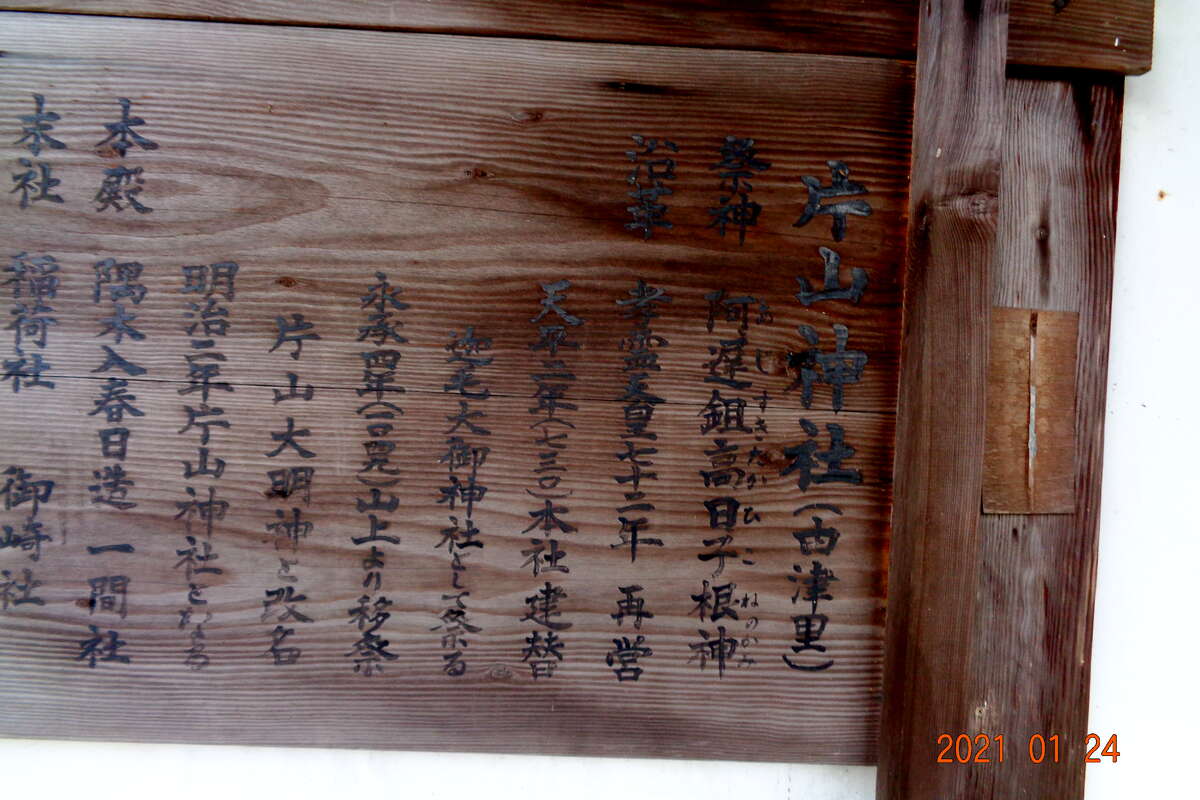 片山神社(西津里)
祭神 阿遅鉏高日子根神
あじすきたかひこねのかみ
沿革 孝霊天皇七十二年 再営
天平二年(七三〇)本社建替
迦毛大御神社として祭る
永承四年(一〇四九)山上より移祭
片山大明神と改名
明治二年片山神社となる
本殿 隅木入春日造 一間社
末社 稲荷社 御崎社
2021 01 24